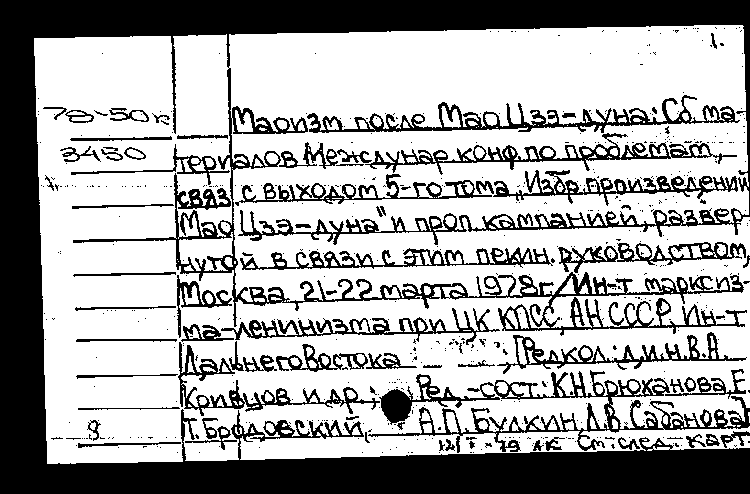 1.
78-50к Маоизм после Мао Цзэ-дуна: Сб ма-
3430 териалов Междунар конф по проблемам,
связ. с выходом 5-го тома „Избр. произведений
Мао Цзэ-дуна" и проп. кампанией, развер-
нутой в связи с этим пекин. руководством,
Москва, 21-22 марта 1978г / Ин-т марксиз-
ма-ленинизма при ЦК КПСС, АН СССР, Ин-т
Дальнего Востока ; [Редкол.: д.и.н. В.А.
Кривцов и др.; Ред.-сост.: К.Н. Брюканова, Е.
8 Т. Бродовский, А.П. Булкин, Л.В. Сабанова]
См. след. карт.